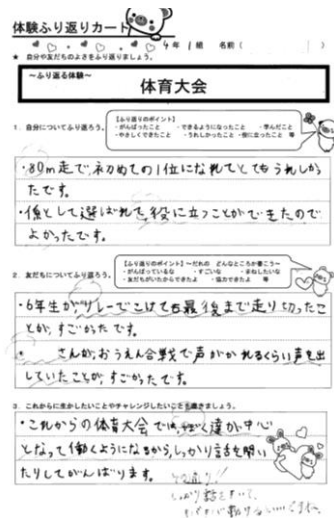 体験ふり返りカード
4年 1組 名前（ ）
★ 自分や友だちのよさをふり返りましょう。
～ふり返る体験～
体育大会
1．自分についてふり返ろう。
【ふり返りのポイント】
・がんばったこと ・できるようになったこと ・学んだこと
・やさしくできたこと ・うれしかったこと ・役に立ったこと 等
・80m走で、初めての1位になれてとてもうれしかっ
たです。
・係として選ばれて役に立つことができたので
よかったです。
2．友だちについてふり返ろう。
【ふり返りのポイント】～だれの どんなところか書こう～
・がんばっているな ・すごいな ・まねしたいな
・友だちがいたからできたよ ・協力できたよ 等
・6年生が、リレーでこけても最後まで走り切ったこ
とが、すごかったです。
・ さんが、おうえん合戦で声がかれるくらい声を出
していたことが、すごかったです。
3．これからに生かしたいことやチャレンジしたいことを書きましょう。
・これからの体育大会では、ぼく達が中心
となって働くようになるから、しっかり話を聞い
たりしてがんばります。
しっかり話をきいて、